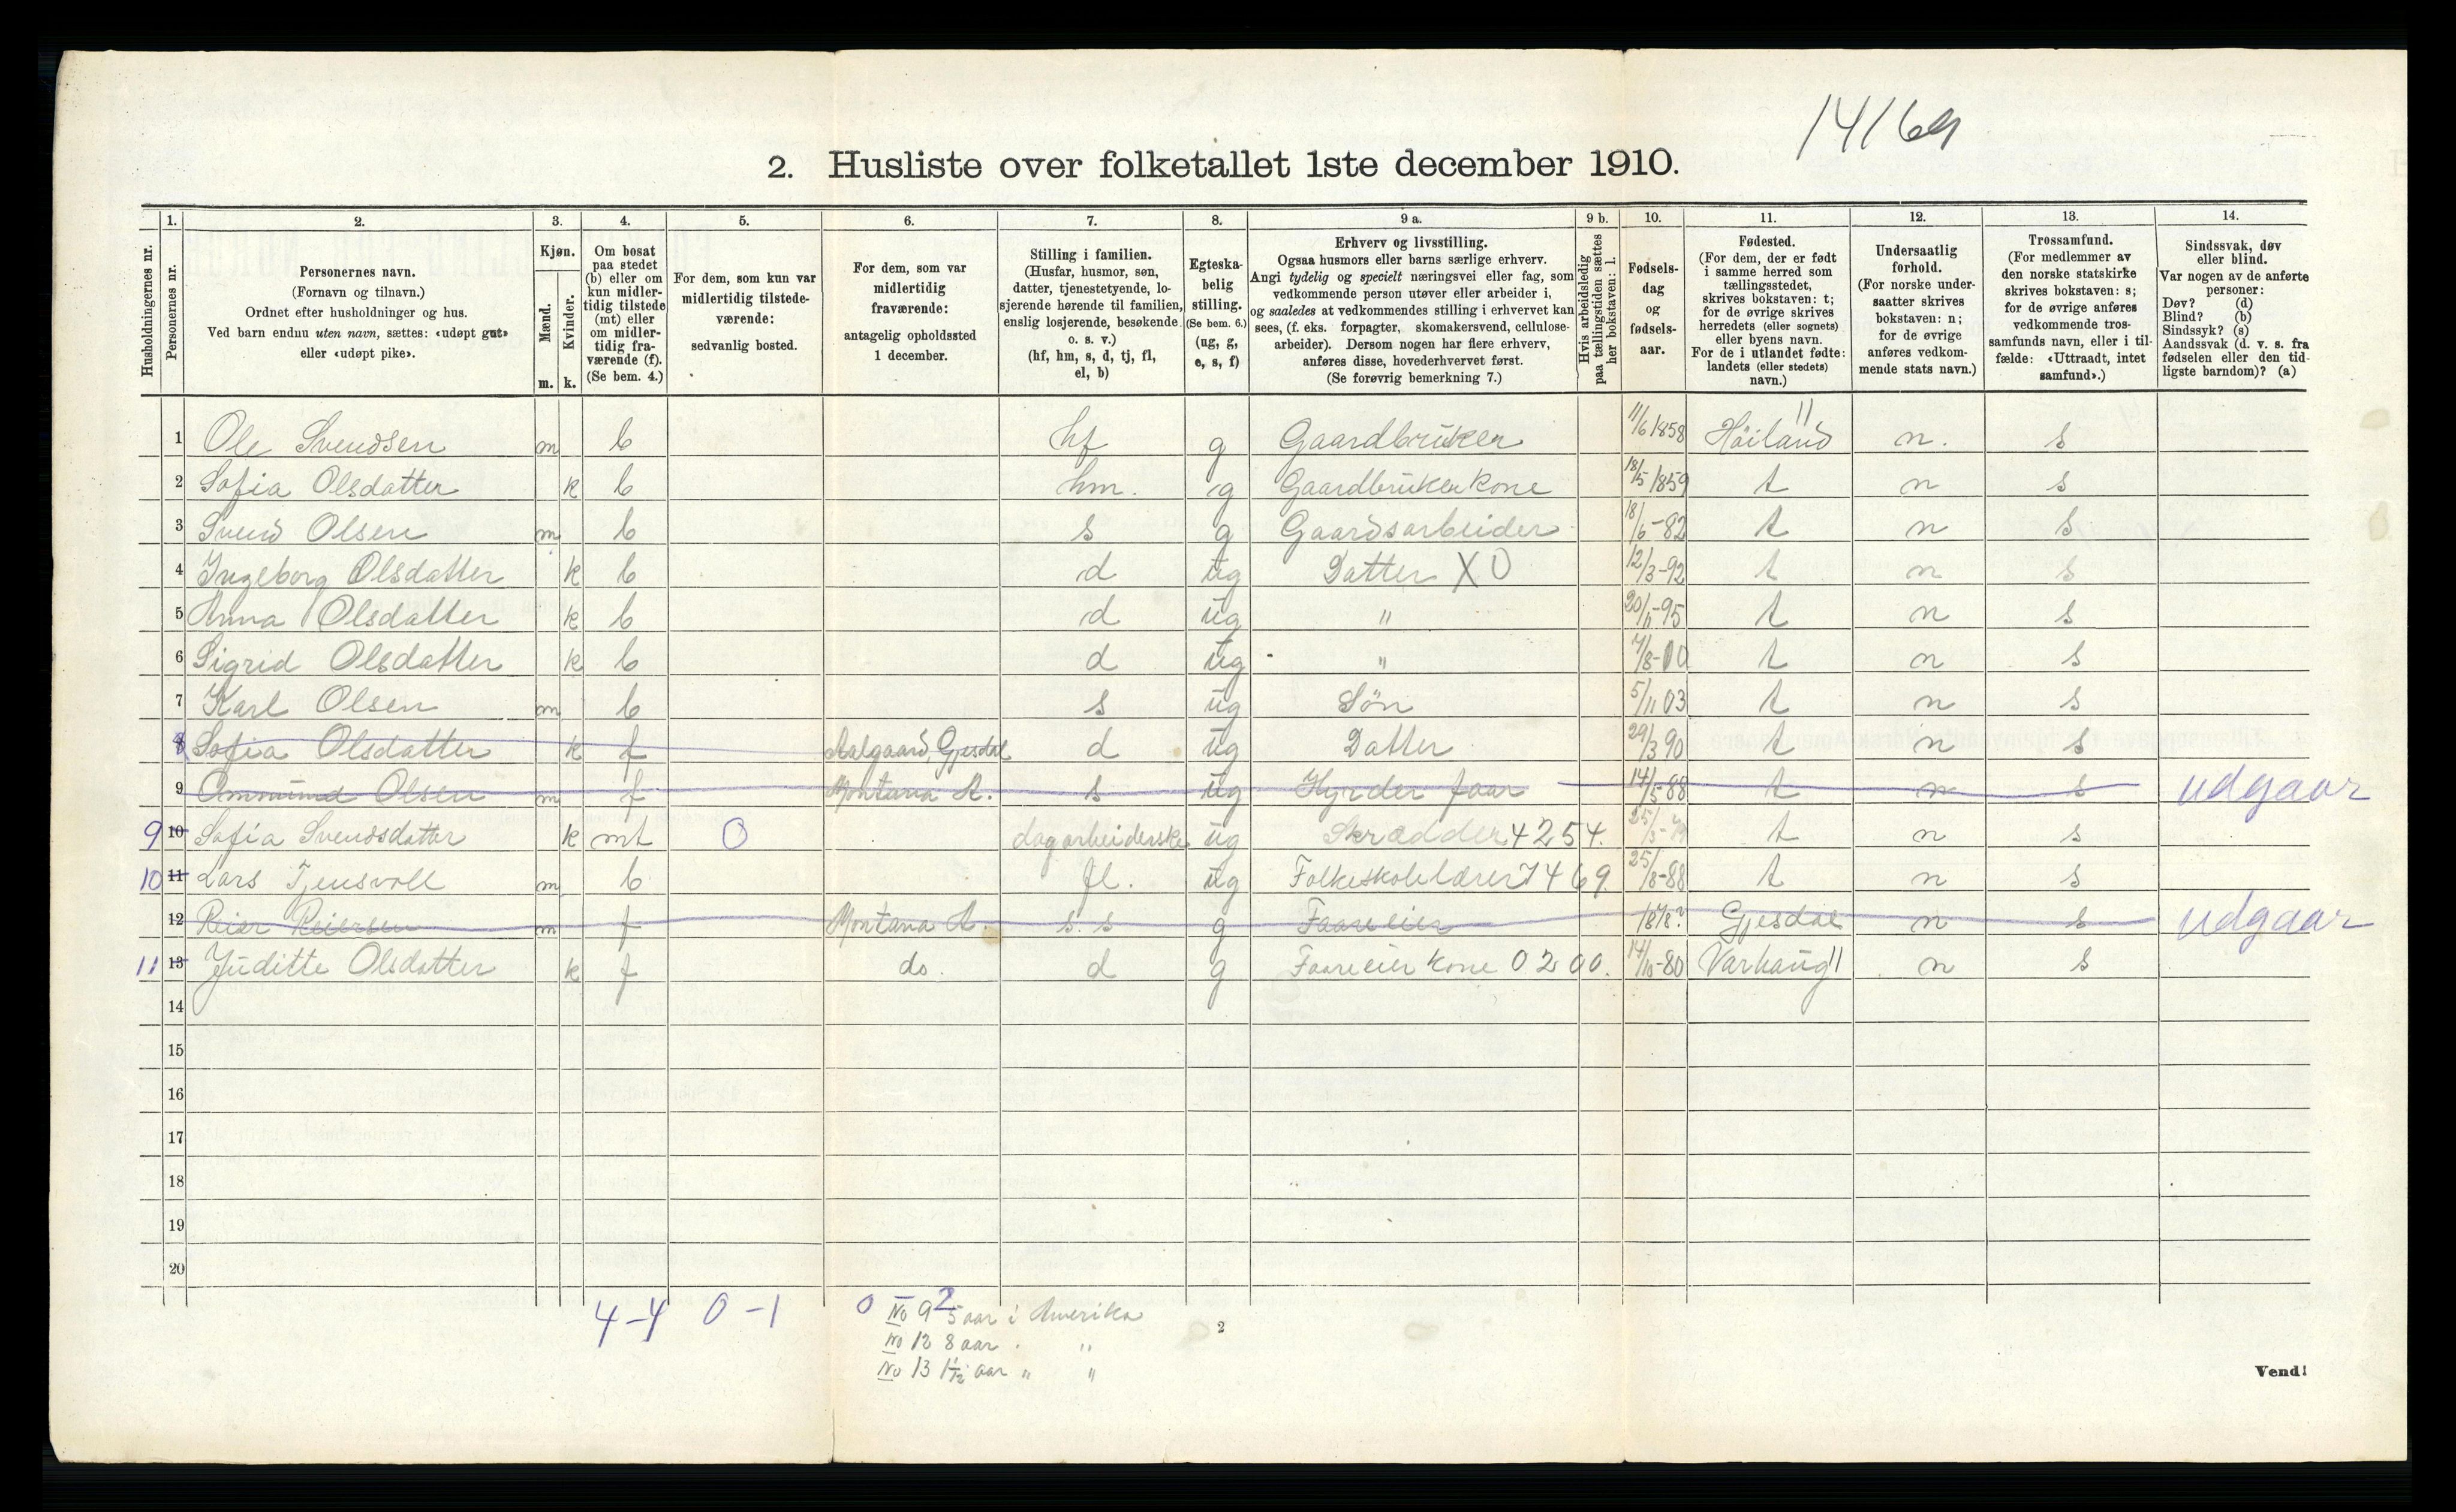 14169
2. Husliste over folketallet 1ste december 1910.
Husholdningernes nr.
1. Personernes nr.
2. Personernes navn. (Fornavn og tilnavn.) Ordnet efter husholdninger og hus. Ved barn endnu uten navn, sættes: «udøpt gut» eller «udøpt pike».
3. Kjøn. Mænd. m. Kvinder. k.
4. Om bosat paa stedet (b) eller om kun midlertidig tilstede (mt) eller om midlertidig fraværende (f). (Se bem. 4.)
5. For dem, som kun var midlertidig tilstedeværende: sedvanlig bosted.
6. For dem, som var midlertidig fraværende: antagelig opholdssted 1 december.
7. Stilling i familien. (Husfar, husmor, søn, datter, tjenestetyende, losjerende hørende til familien, enslig losjerende, besøkende o. s. v.) (hf, hm, s, d, tj, fl, el, b)
8. Egteskabelig stilling. (Se bem. 6.) (ug, g, e, s, f)
9 a. Erhverv og livsstilling. Ogsaa husmors eller barns særlige erhverv. Angi tydelig og specielt næringsvei eller fag, som vedkommende person utøver eller arbeider i, og saaledes at vedkommendes stilling i erhvervet kan sees, (f. eks. forpagter, skomakersvend, cellulosearbeider). Dersom nogen har flere erhverv, anføres disse, hovederhvervet først. (Se forøvrig bemerkning 7.)
9 b. Hvis arbeidsledig paa tællingstiden sættes her bokstaven: l.
10. Fødselsdag og fødselsaar.
11. Fødested. (For dem, der er født i samme herred som tællingsstedet, skrives bokstaven: t; for de øvrige skrives herredets (eller sognets) eller byens navn. For de i utlandet fødte: landets (eller stedets) navn.)
12. Undersaatlig forhold. (For norske undersaatter skrives bokstaven: n; for de øvrige anføres vedkommende stats navn.)
13. Trossamfund. (For medlemmer av den norske statskirke skrives bokstaven: s; for de øvrige anføres vedkommende trossamfunds navn, eller i tilfælde: «Uttraadt, intet samfund».)
14. Sindssvak, døv eller blind. Var nogen av de anførte personer: Døv? (d) Blind? (b) Sindssyk? (s) Aandssvak (d. v. s. fra fødselen eller den tidligste barndom)? (a)
1 Ole Svendsen m b hf g Gaardbruker 11/6 1858 Höiland 11 n. s
2 Sofia Olsdatter k b hm. g Gaardbruker kone 18/5 1859 t n s
3 Svend Olsen m b s g Gaardsarbeider 18/6-82 t n s
4 Ingeborg Olsdatter k b d ug Datter X0 12/3-92 t n s
5 Anna Olsdatter k b d ug " t n s
6 Sigrid Olsdatter k b d ug " t n s
7 Karl Olsen m b s ug Sön 5/11 03 t n s
8 Sofia Olsdatter k f Aalgaard, Gjesdal d ug Datter 29/3 90 t n s
9 Ommund Olsen m f Montana A. s ug Hyrder faar 14/5-88 t n s udgaar
9 10 Sofia Svendsdatter k mt 0 dagarbeiderske ug Skrædder 4254. t n s
10 11 Lars Tjensvoll m b fl. ug Folkeskolelærer 7469. 25/8-88 t n s
12 Reier Reiersen m f Montana A. s. s g Faareeier 1878? Gjesdal n s udgaar
11 13 Juditte Olsdatter k f do. d g Faareeier kone 0200. 14/10-80 Varhaug 11 n s
14
15
16
17
18
19
20
4-4 0-1 0 2
No 9 5 aar i Amerika
No 12 8 aar " "
No 13 1½ aar " "
2
Vend!